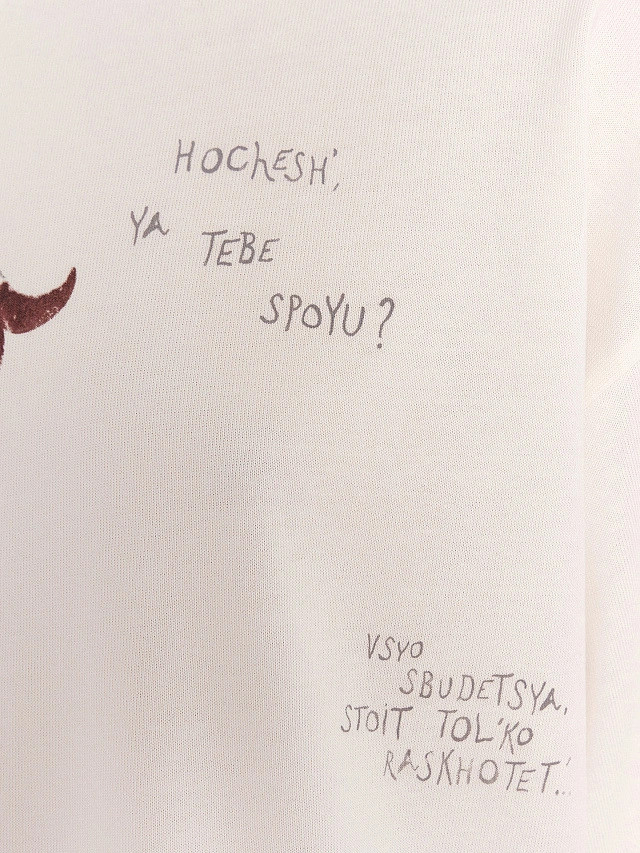 HOChESH',
YA TEBE
SPOYU?
VSYO
SBUDETSYA,
STOiT TOL'KO
RASKHOTET'...